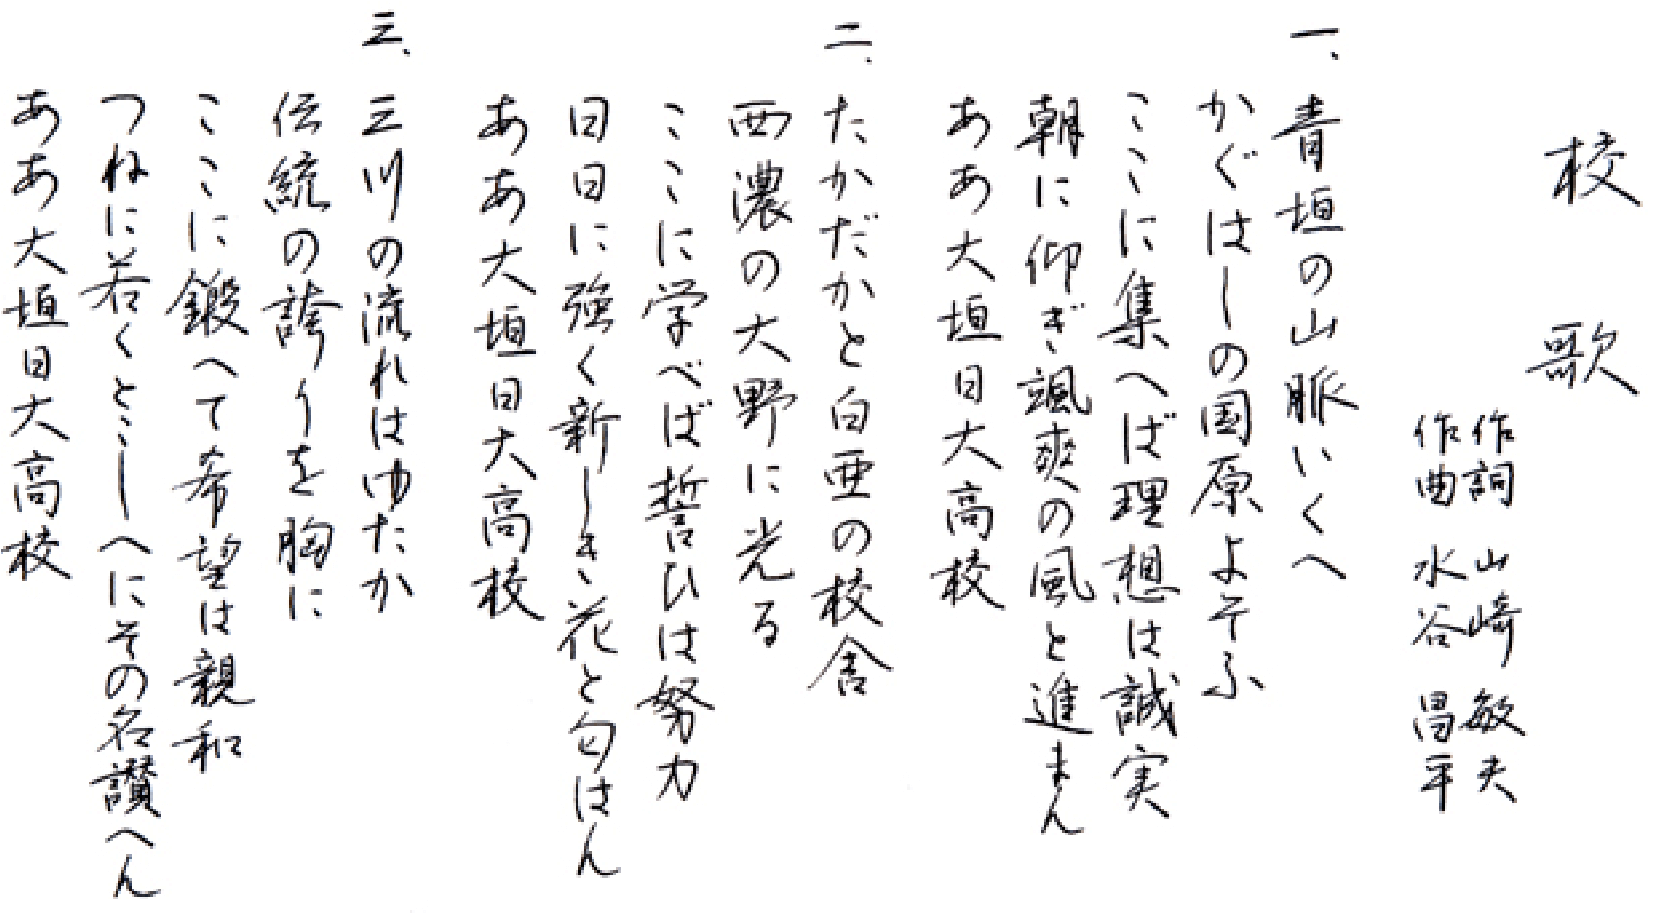 校歌
作詞 山崎 敏夫
作曲 水谷 昌平
一、青垣の山脈いくへ
かぐはしの国原よそふ
ここに集へば理想は誠実
朝に仰ぎ颯爽の風と進まん
ああ大垣日大高校
二、たかだかと白亜の校舎
西濃の大野に光る
ここに学べば誓ひは努力
日日に強く新しき花と匂はん
ああ大垣日大高校
三、三川の流れはゆたか
伝統の誇りを胸に
ここに鍛へて希望は親和
つねに若くとこしへにその名讃へん
ああ大垣日大高校